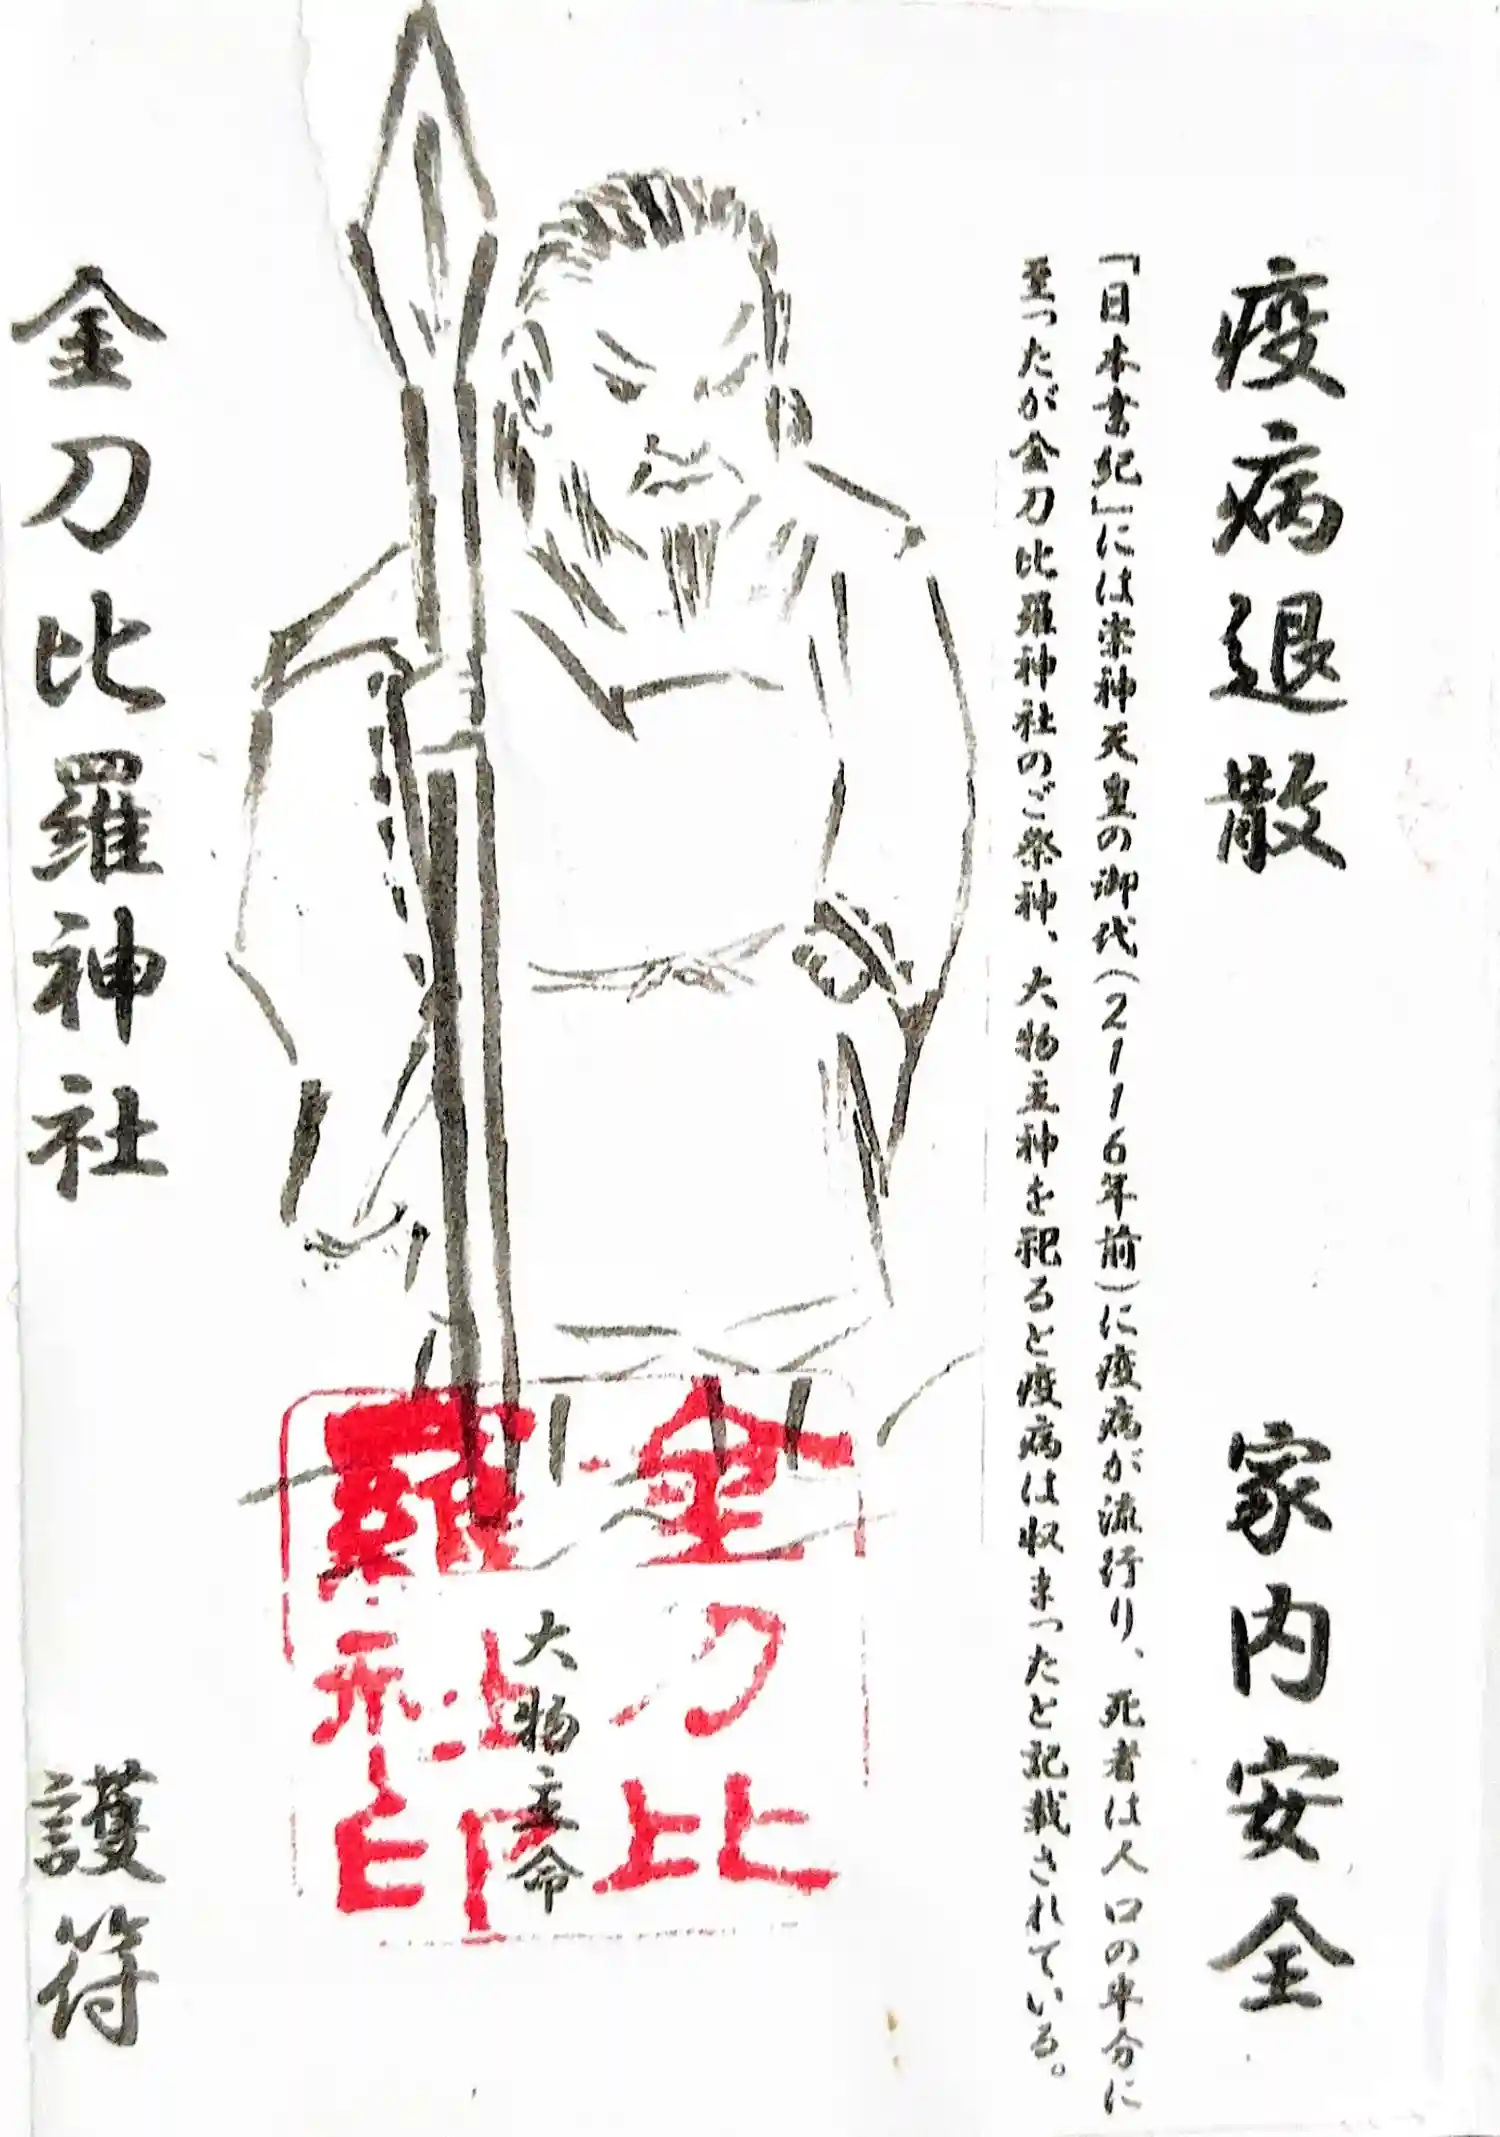 疫病退散　家内安全
「日本書紀」には崇神天皇の御代(2116年前)に疫病が流行り、死者は人口の半分に
至ったが金刀比羅神社のご祭神、大物主神を祀ると疫病は収まったと記載されている。
大物主命
金刀比
羅神社
金刀比羅神社　護符